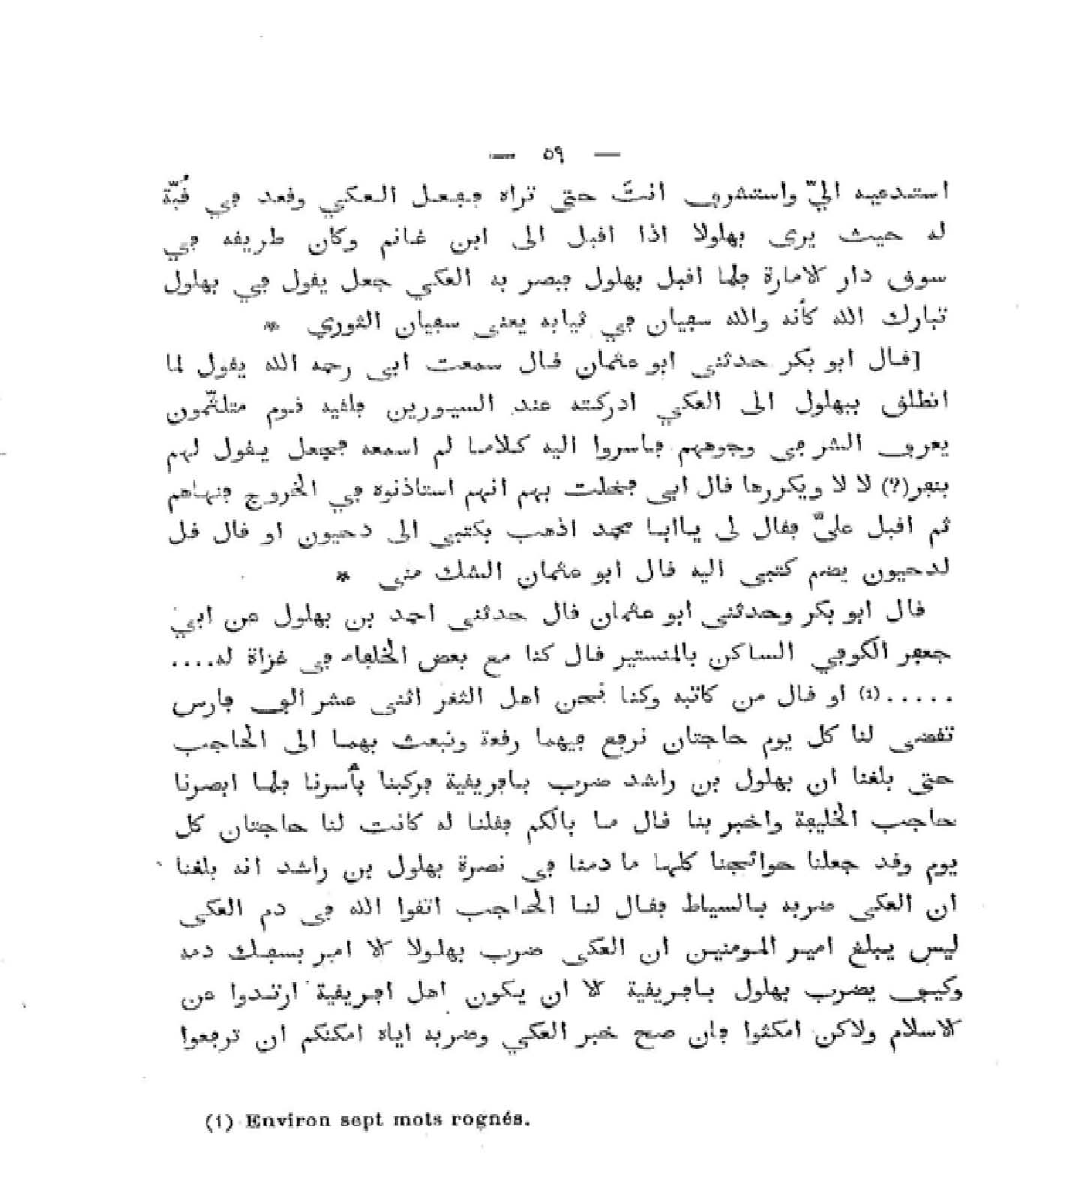 — ٥٩ —
استدعيه اليّ واستشرف انتَ حتى تراه ففعل العكي وقعد في قُبّة
له حيث يرى بهلولا اذا اقبل الى ابن غانم وكان طريقه في
سوق دار الامارة فلما اقبل بهلول فبصر به العكي جعل يقول في بهلول
تبارك الله كأنه والله سفيان في ثيابه يعنى سفيان الثوري *
[قال ابو بكر حدثنى ابو عثمان قال سمعت ابى رحمه الله يقول لما
انطلق ببهلول الى العكي ادركته عند السيورين فلقيه قوم متلثّمون
يعرف الشر فى وجوههم فاسروا اليه كلاما لم اسمعه فجعل يقول لهم
بنفر(؟) لا لا ويكررها قال ابى فخلت بهم انهم استاذنوه في الخروج فنهاهم
ثم اقبل عليّ فقال لى يابا محمد اذهب بكتبى الى دحيون او قال قل
لدحيون يضم كتبى اليه قال ابو عثمان الشك منى *
قال ابو بكر وحدثنى ابو عثمان قال حدثنى احمد بن بهلول عن ابي
جعفر الكوفي الساكن بالمنستير قال كنا مع بعض الخلفاء فى غزاة له....
.....(1) او قال من كاتبه وكنا نحن اهل الثغر اثنى عشر الف فارس
تقضى لنا كل يوم حاجتان نرفع فيهما رقعة ونبعث بهما الى الحاجب
حتى بلغنا ان بهلول بن راشد ضرب بافريقية فركبنا بأسرنا فلما ابصرنا
حاجب الخليفة واخبر بنا قال ما بالكم فقلنا له كانت لنا حاجتان كل
يوم وقد جعلنا حوائجنا كلها ما دمنا فى نصرة بهلول بن راشد انه بلغنا
ان العكى ضربه بالسياط فقال لنا الحاجب اتقوا الله فى دم العكى
ليس يبلغ امير المومنين ان العكى ضرب بهلولا الا امر بسفك دمه
وكيف يضرب بهلول بافريقية الا ان يكون اهل افريقية ارتدوا عن
الاسلام ولاكن امكثوا فان صح خبر العكي وضربه اياه امكنكم ان ترفعوا
(1) Environ sept mots rognés.